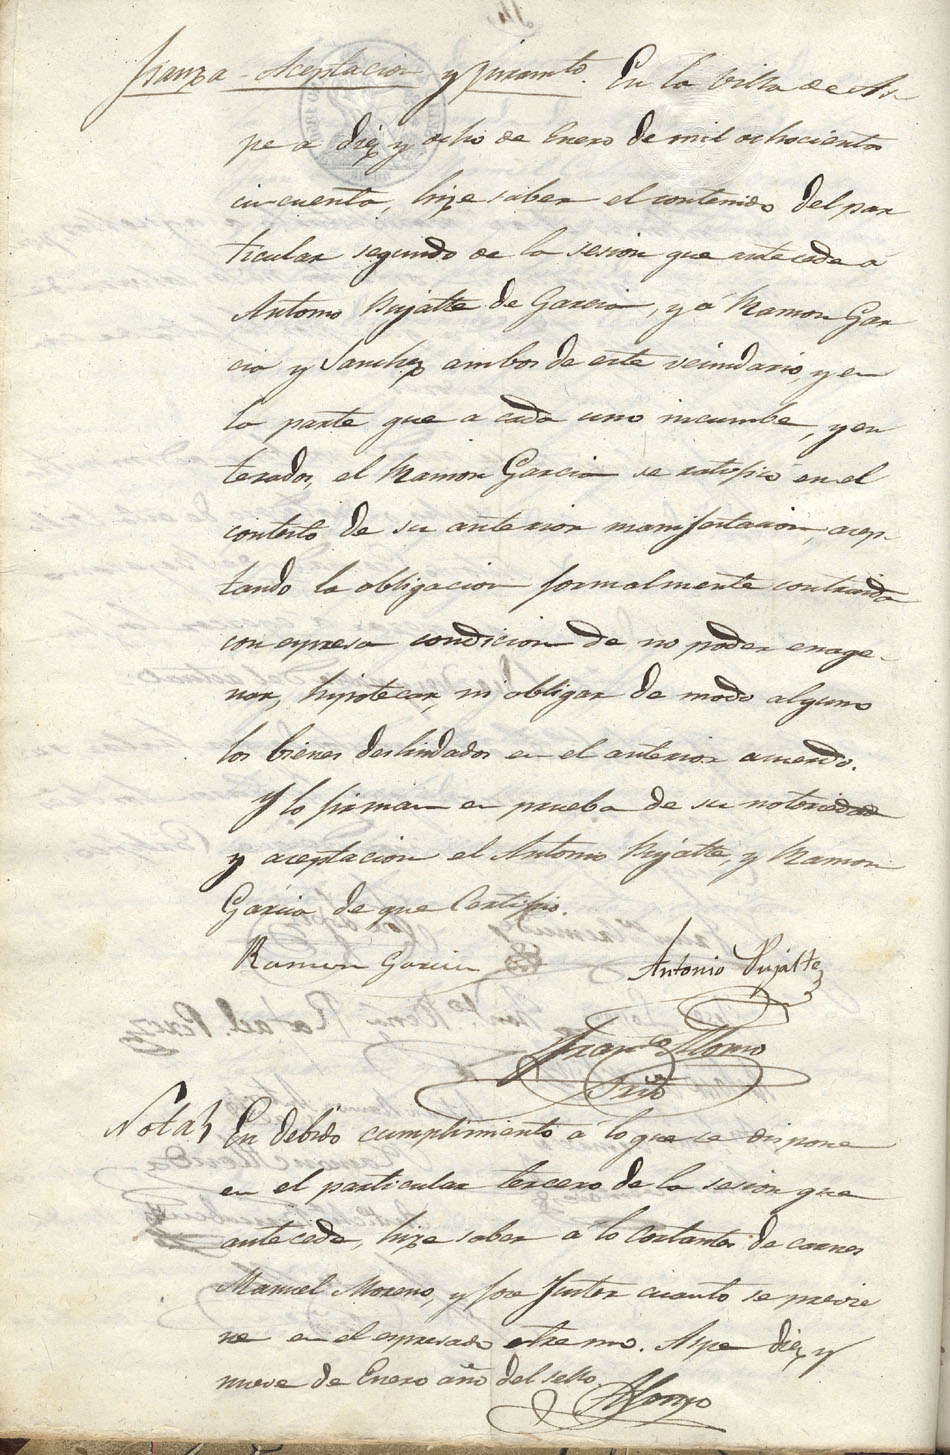 fianza - Aceptacion y juramto. En la Villa de As-
pe a diez y ocho de Enero de mil ochocientos
cincuenta, hize saber el contenido del par
ticular segundo de la sesion que antecede a
Antonio Pujalte de Garcia, y a Ramon Gar
cia y Sanchez ambos de este vecindario, y en
la parte que a cada uno incumbe, y en
terados, el Ramon Garcia se ratificó en el
contesto de su anterior manifestacion, acep-
tando la obligacion formalmente contraida
con espresa condicion de no poder enage-
nar, hipotecar, ni obligar de modo alguno
los bienes deslindados en el anterior acuerdo.
Y lo firman en prueba de su notoriedad
y aceptacion el Antonio Pujalte, y Ramon
Garcia de que Certifico.
Ramon Garcia Antonio Pujalte
Alonso
Srio
Nota En debido cumplimiento a lo que se dispone
en el particular tercero de la sesion que
antecede, hize saber a lo cortantes de carnes
Manuel Moreno, y Jose cuanto se previe
ne en el espresado estremo. Aspe diez y
nueve de Enero año del sello.
Alonso